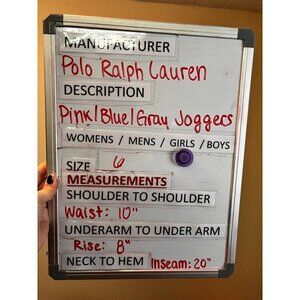 MANUFACTURER
Polo Ralph Lauren
DESCRIPTION
Pink/Blue/Gray Joggers
WOMENS / MENS / GIRLS / BOYS
SIZE 6
MEASUREMENTS
SHOULDER TO SHOULDER
Waist: 10"
UNDERARM TO UNDER ARM
Rise: 8"
NECK TO HEM Inseam: 20"